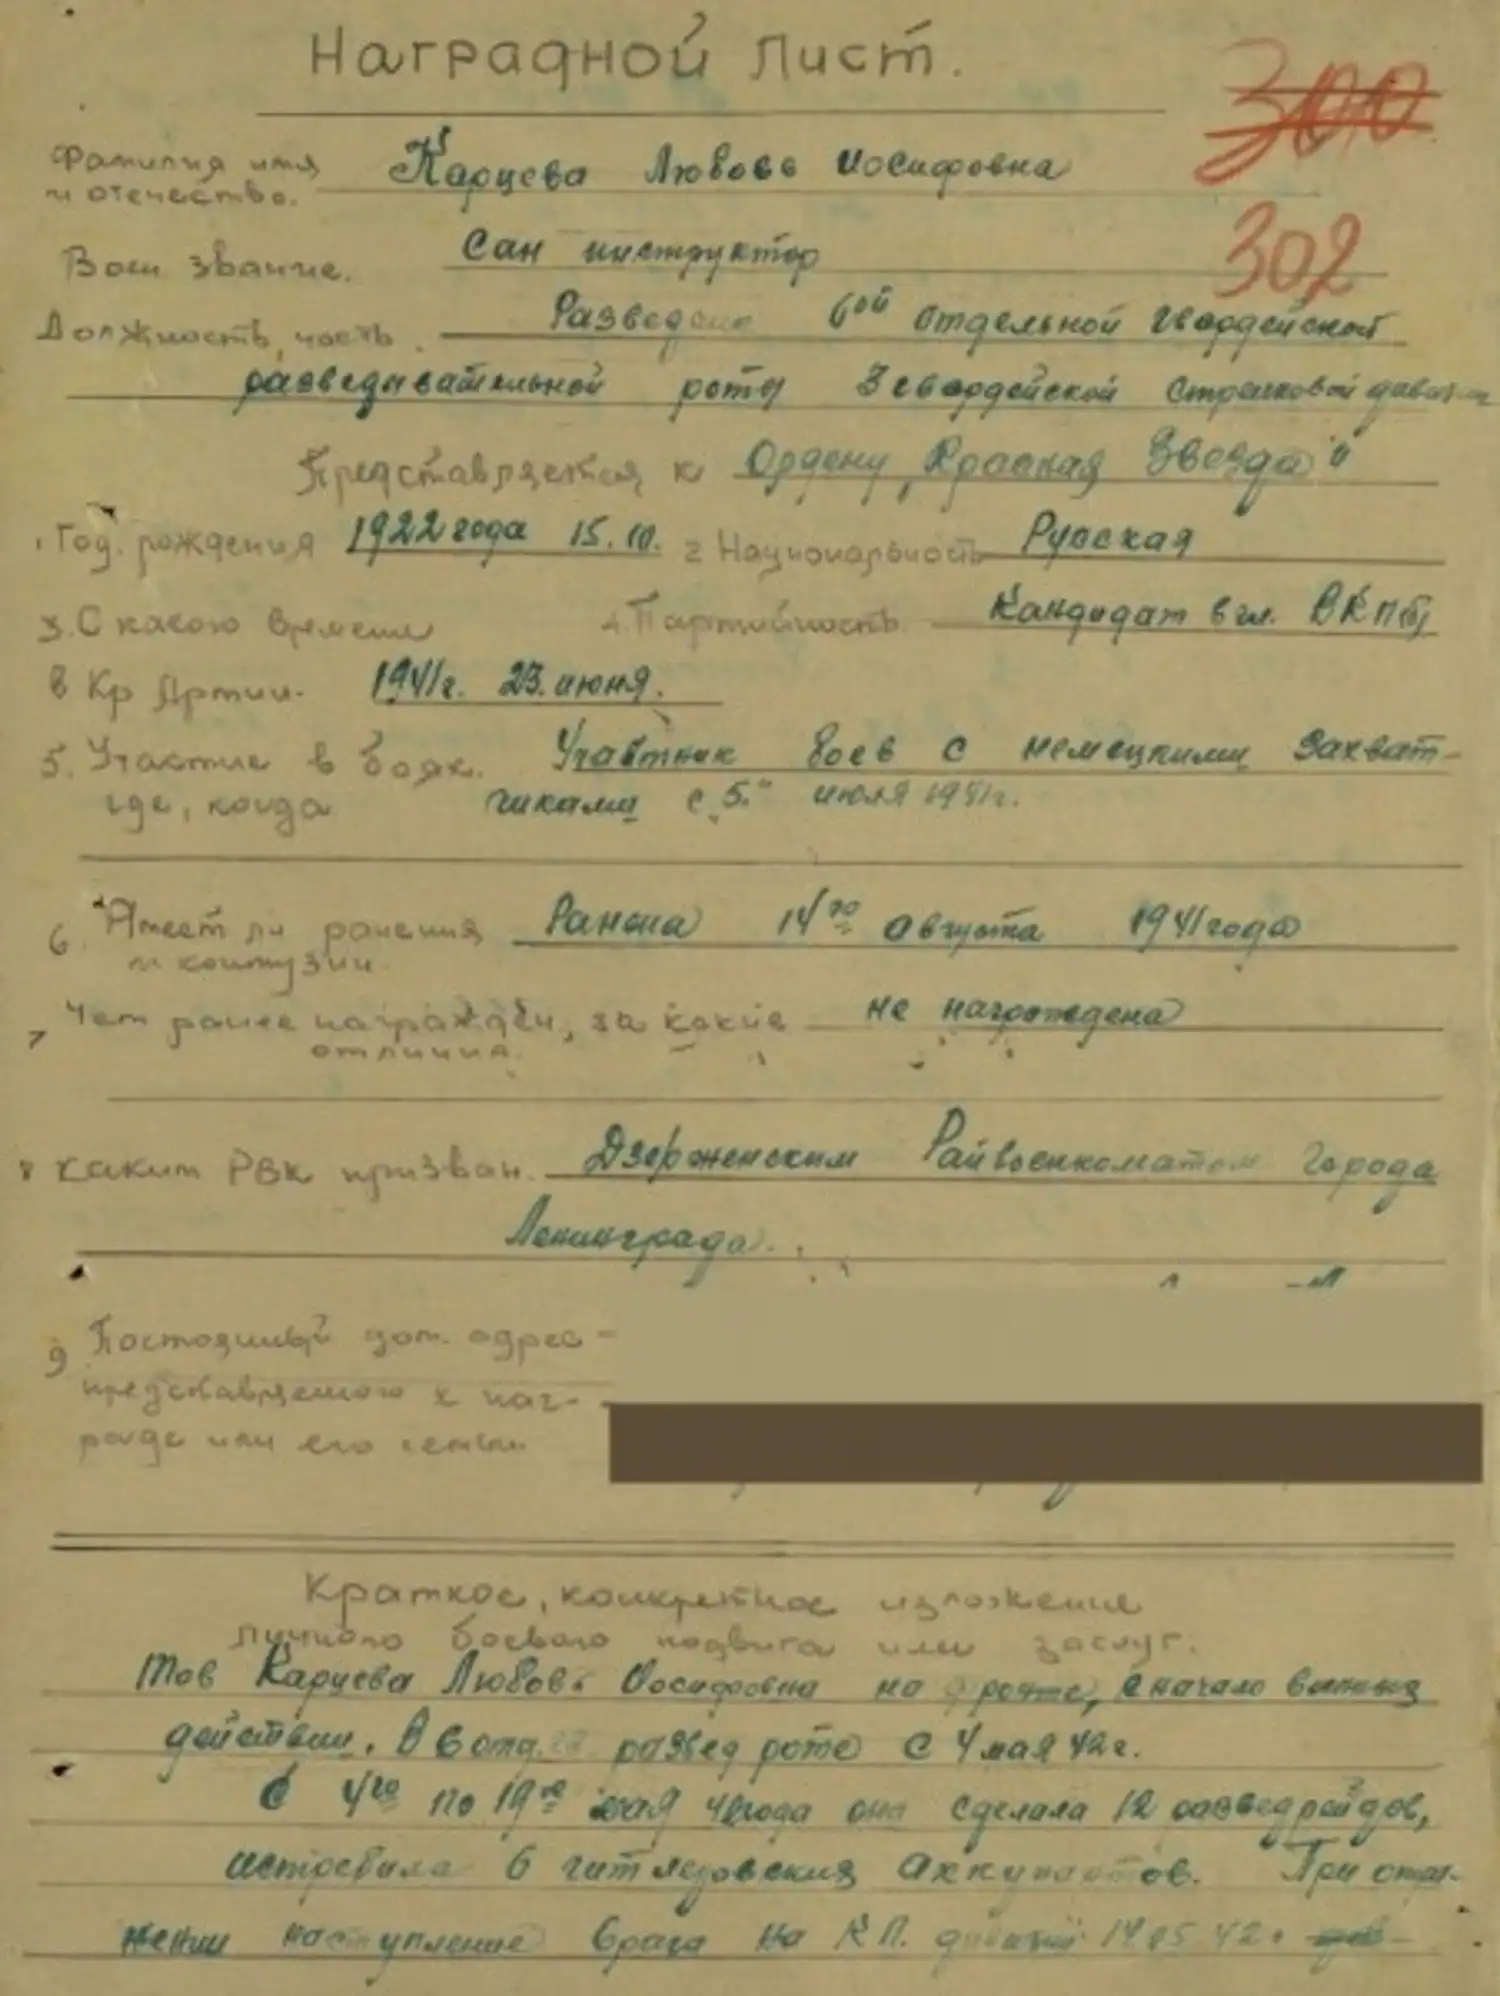 Наградной лист.
300
Фамилия имя
и отечество.
Карцева Любовь Иосифовна
302
Воен звание.
Сан инструктор
Должность, часть.
6ой отдельной гвардейской
разведывательной роты 3 гвардейской стрелковой дивизии
Представляется к Ордену "Красная Звезда"
1 Год. рождения 1922 года 15.10. 2 Национальность Русская
3. С какого времени 4. Партийность. Кандидат в чл. ВКП(б)
в Кр Армии. 1941г. 23. июня.
5. Участие в боях. Участник боев с немецкими захват-
где, когда чиками с 5. июля 1941г.
6. Имеет ли ранения Ранена 14го августа 1941 года
и контузии.
7 Чем ранее награжден, за какие не награждена
отличия.
8 каким РВК призван. Дзержинским Райвоенкоматом города
Ленинграда.
9 Постоянный дом. адрес -
представляемого к наг-
раде или его семьи
Краткое, конкретное изложение
личного боевого подвига или заслуг.
Тов Карцева Любовь Иосифовна на фронте, с начало военных
действии. В 6 отд. развед роте с 4 мая 42 г.
С 4го по 19е мая 42 года она сделала 12 разведрейдов,
истребила 6 гитлеровских аккупантов. При отра-
жении наступление врага на К.П. дивизии 14.05.42.